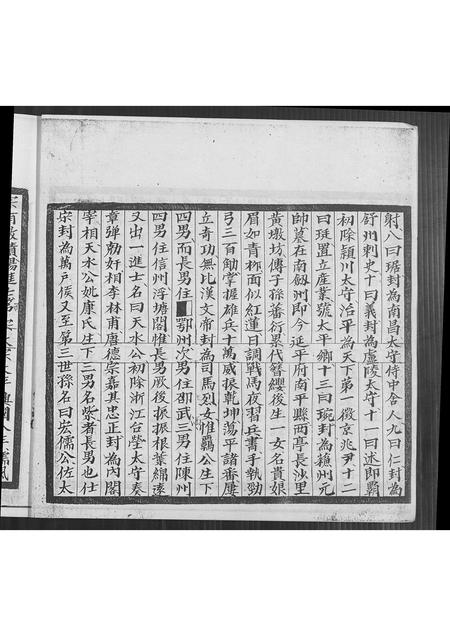 射八曰琚封為南昌太守侍中舍人九曰仁封為
舒州刺史十曰義封為廬陵太守十一曰述即霸
初除潁川太守治平為天下第一徵京兆尹十二
曰珽置立產業號太平鄉十三曰琬封為蘓州元
帥墓在南劔州即今延平府南平縣西亭長沙里
黃墩坊傳子孫蕃衍累代簪纓後生一女名貴娘
眉如青柳面似紅蓮日調戰馬夜習兵書手執勁
弓三百觔掌握雄兵十萬威振乾坤蕩平諸畨屢
立奇功無比漢文帝封為司馬烈女惟覇公生下
四男而長男住鄂州次男住邵武三男住陳州
四男住信州浮塘閣惟長男厥後振振根葉綿遠
又出一進士名曰天水公初除浙江台瑩太守奏
章弹劾奸相李林甫唐德宗嘉其忠正封為內閣
宰相天水公妣康氏生下三男名紫者長男也仕
宋封為萬戶侯又至第三世孫名曰宏儒公佐太